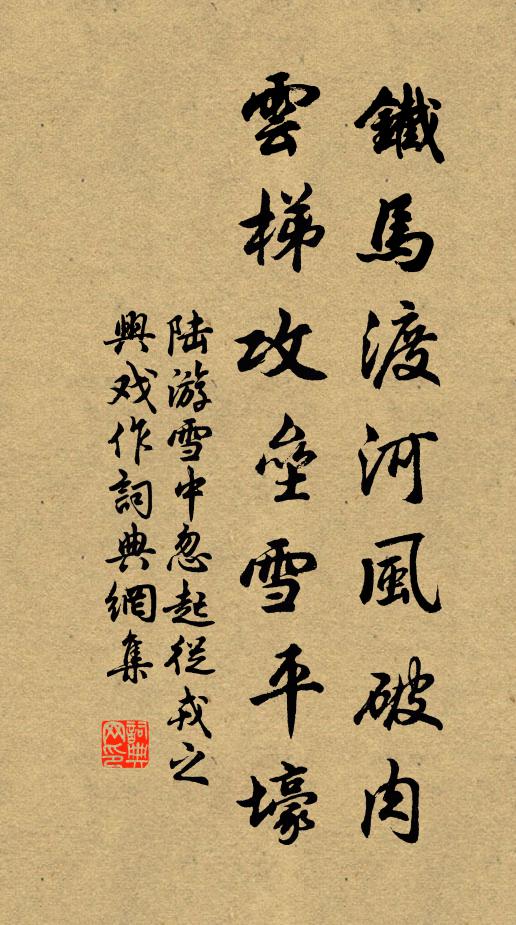 鐵馬渡河風破肉
雲梯攻壘雪平壕
陆游雪中忽起從戎之
興戏作詞典網集
詞典网印